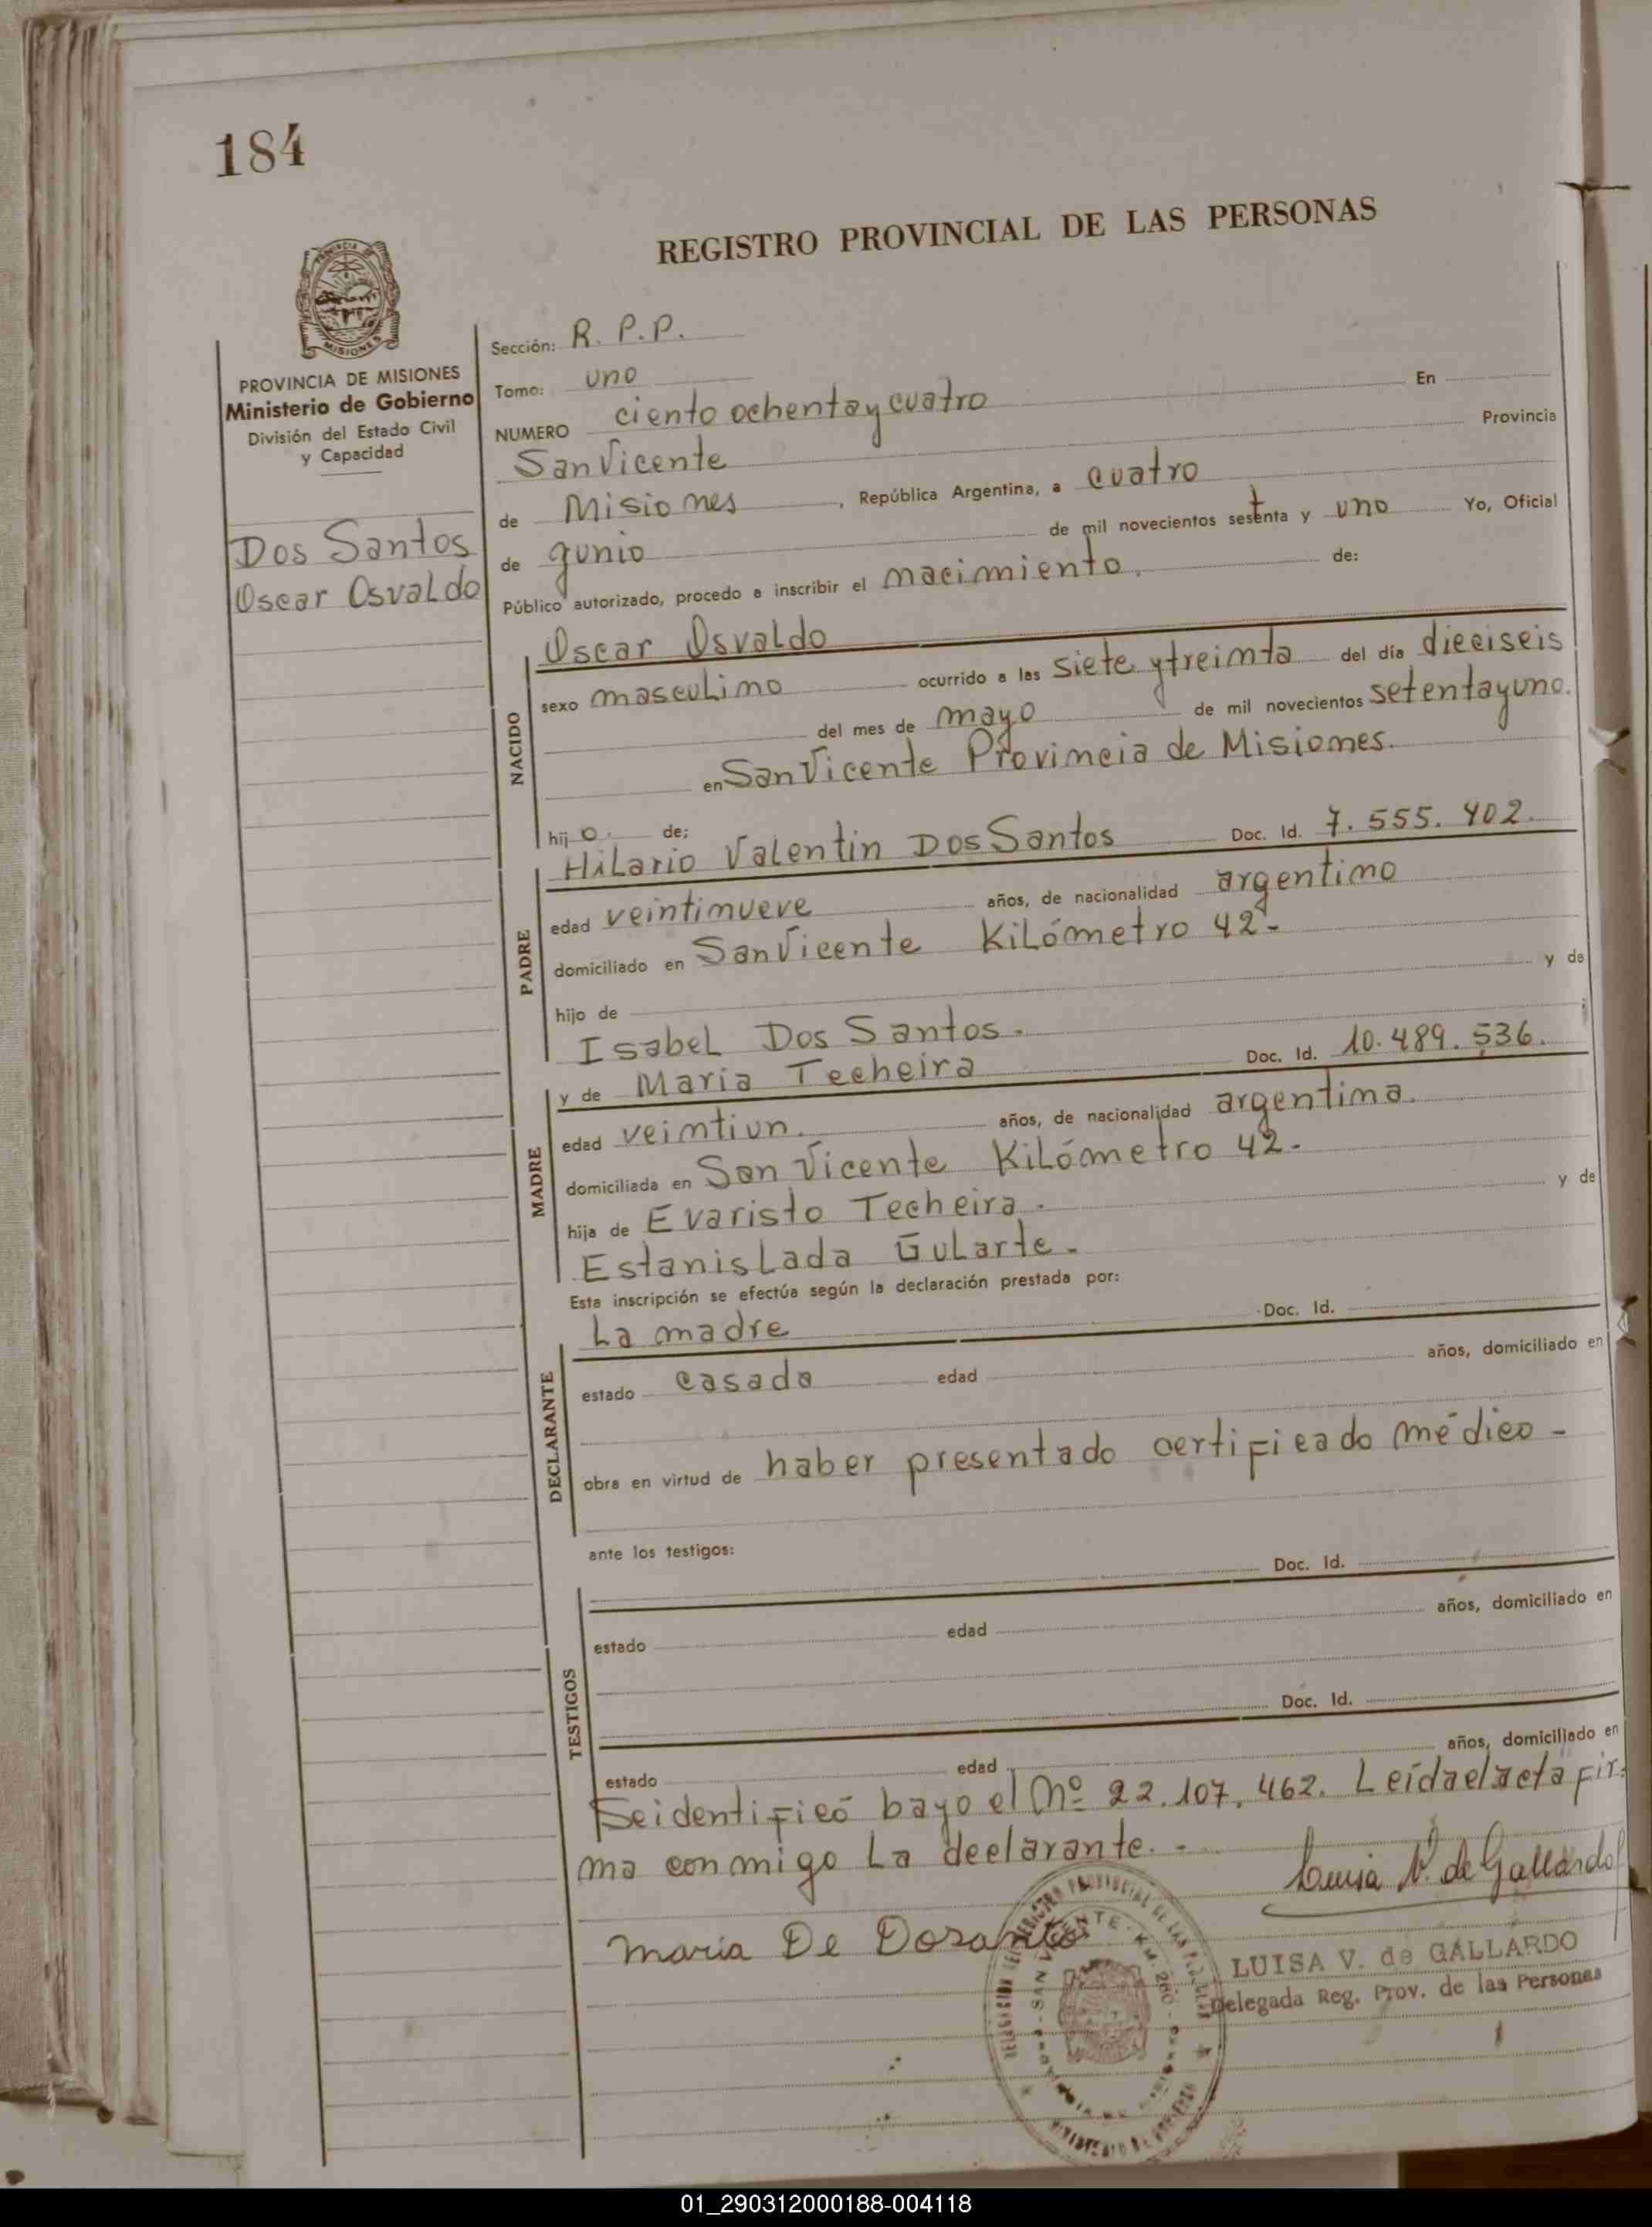 184
REGISTRO PROVINCIAL DE LAS PERSONAS
PROVINCIA DE MISIONES
Ministerio de Gobierno
División del Estado Civil
y Capacidad
Dos Santos
Oscar Osvaldo
Sección: R. P. P.
Tomo: uno
NUMERO ciento ochenta y cuatro En
San Vicente Provincia
de Misiones, República Argentina, a cuatro
de gunio de mil novecientos setenta y uno Yo, Oficial
Público autorizado, procedo a inscribir el nacimiento. de:
NACIDO
Oscar Osvaldo
sexo masculino ocurrido a las siete y treinta del día dieciseis
del mes de mayo de mil novecientos setenta y uno.
en San Vicente Provincia de Misiones.
hijo. de:
PADRE
Hilario Valentin Dos Santos Doc. Id. 7.555.402.
edad veintinueve años, de nacionalidad argentino
domiciliado en San Vicente Kilómetro 42-
hijo de y de
Isabel Dos Santos.
y de Maria Techeira Doc. Id. 10.489.536.
MADRE
edad veintiun. años, de nacionalidad argentina.
domiciliada en San Vicente Kilómetro 42-
hija de Evaristo Techeira. y de
Estanislada Gularte-
Esta inscripción se efectúa según la declaración prestada por:
DECLARANTE
La madre Doc. Id.
estado casada edad años, domiciliado en
obra en virtud de haber presentado certificado médico-
ante los testigos:
TESTIGOS
Doc. Id.
estado edad años, domiciliado en
Doc. Id.
estado edad años, domiciliado en
Se identificó bayo el Nº 22.107.462. Leída el acta fir-
ma conmigo La declarante.-
Luisa V. de Gallardo
Maria De Dosantos
LUISA V. de GALLARDO
Delegada Reg. Prov. de las Personas
REGISTRO PROVINCIAL DE LAS PERSONAS
SAN VICENTE - KM. 260
01_290312000188-004118